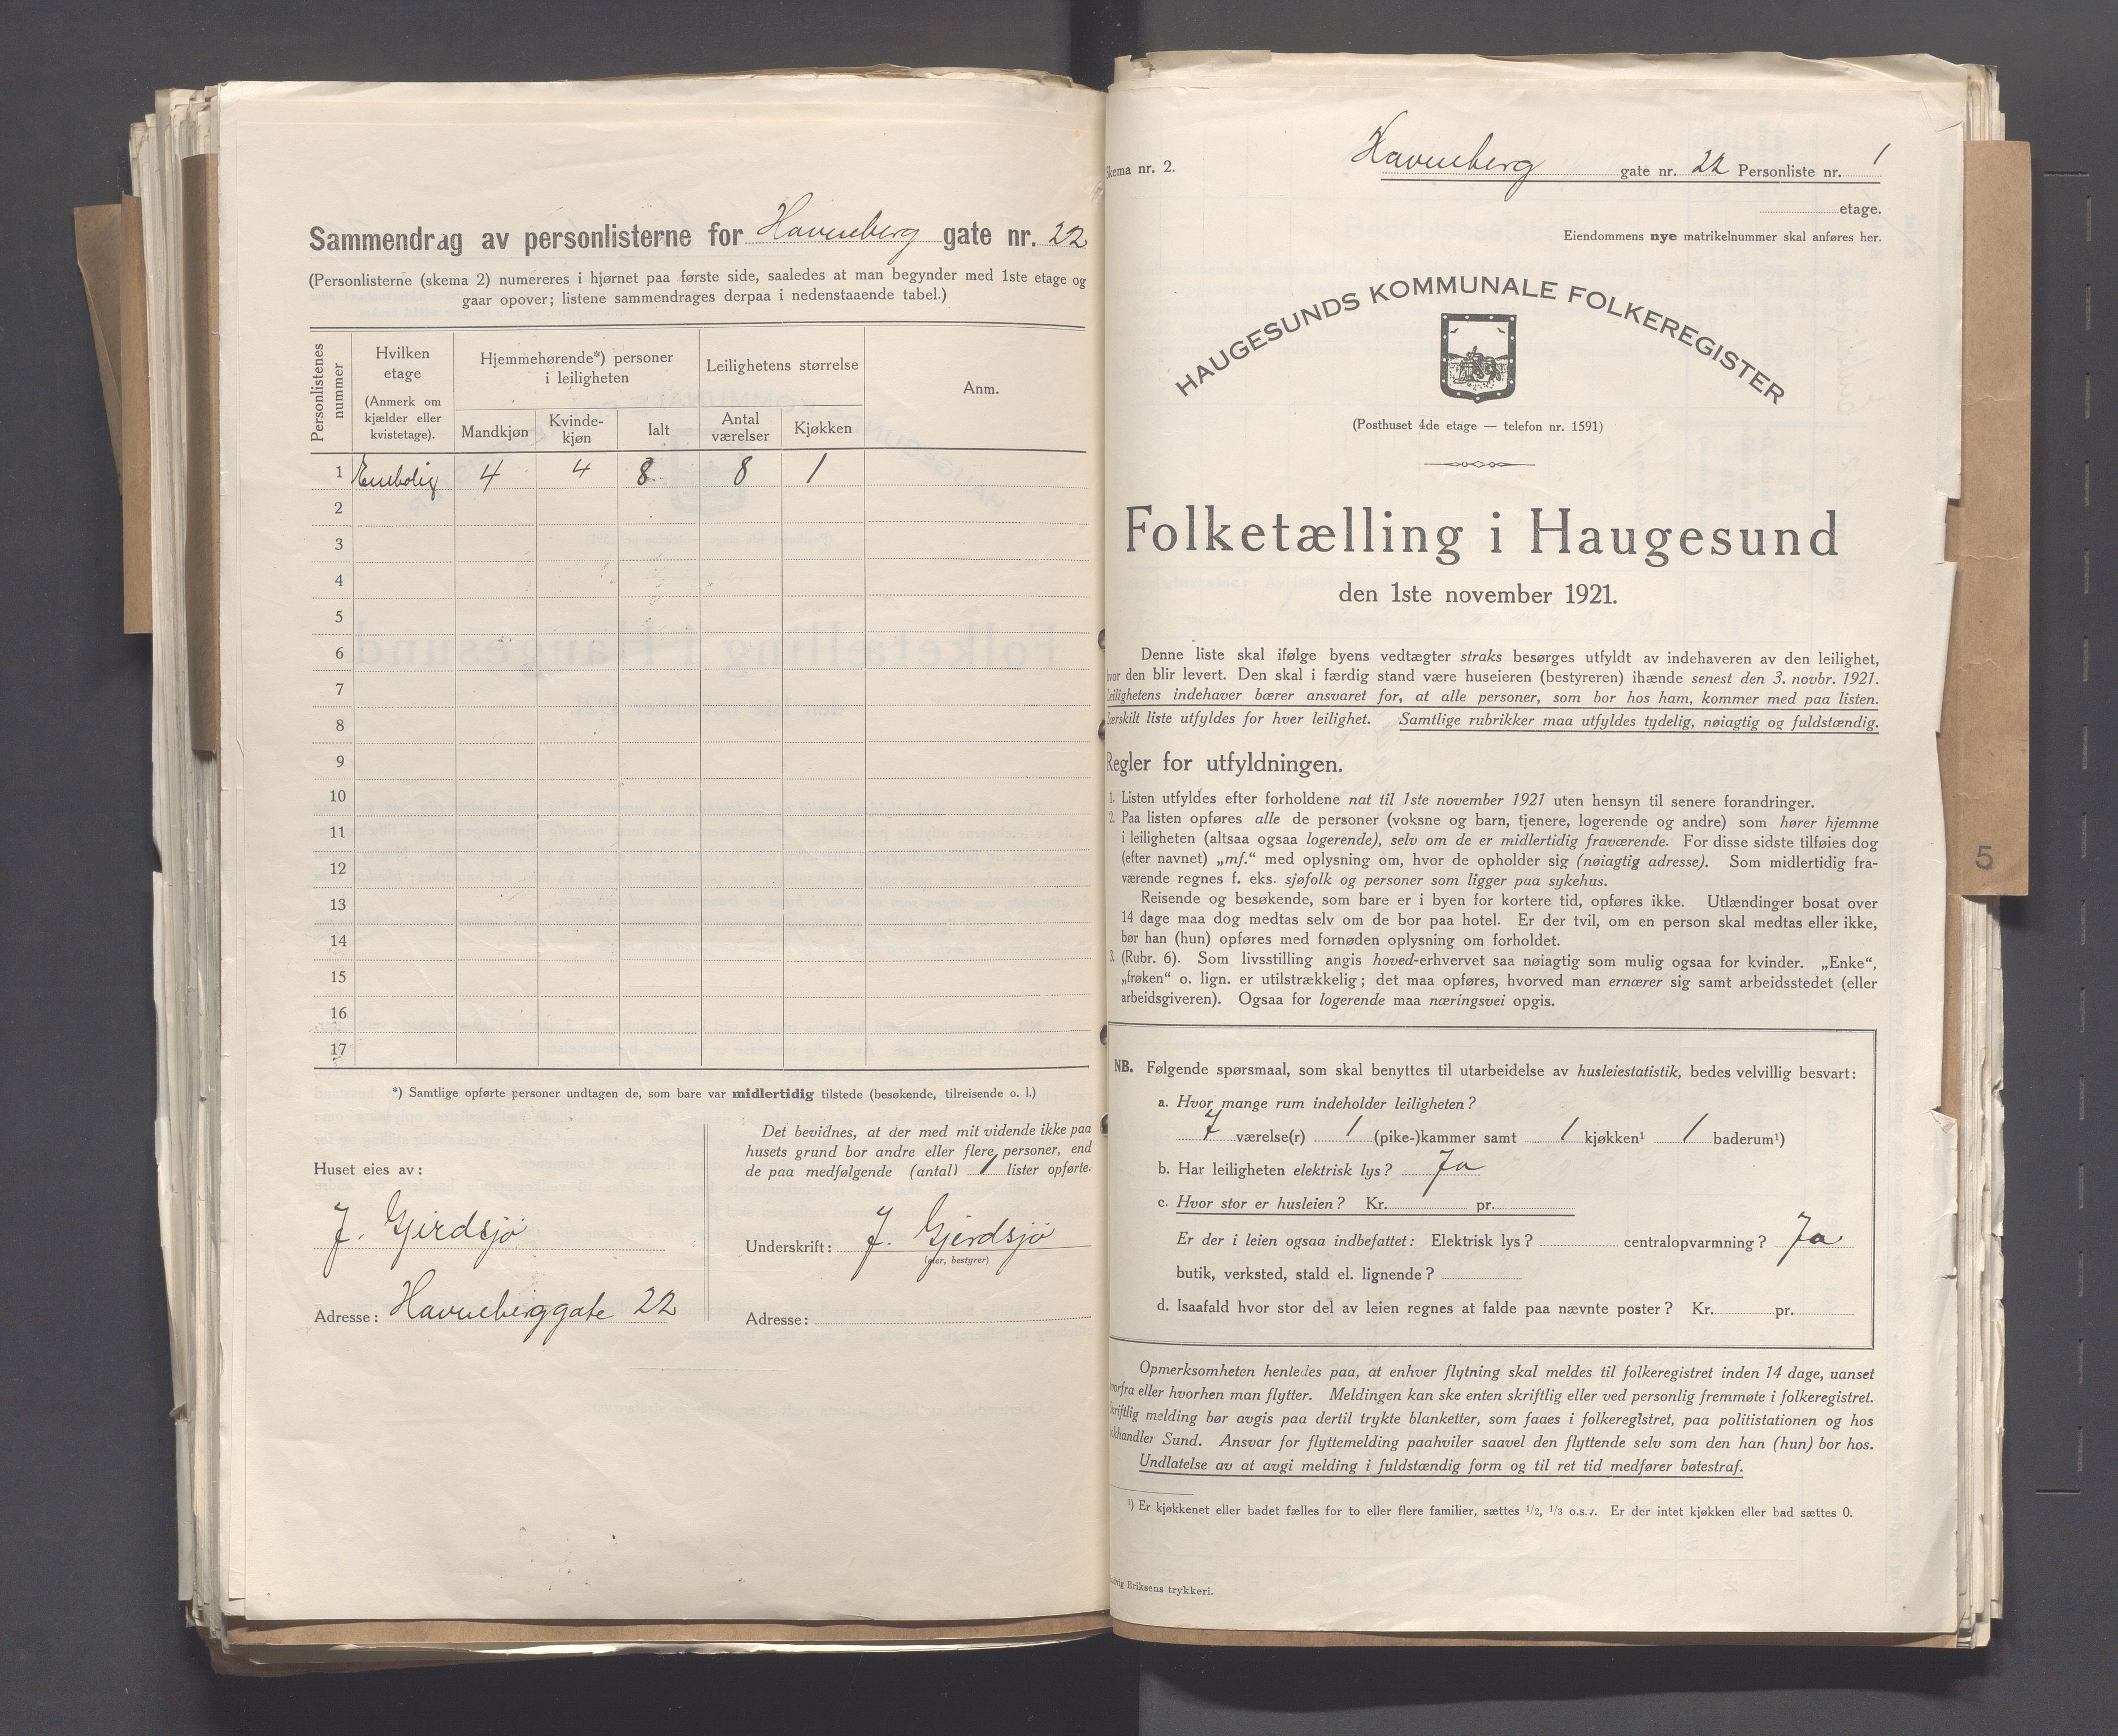 Sammendrag av personlisterne for Havneberg gate nr. 22
(Personlisterne (skema 2) numereres i hjørnet paa første side, saaledes at man begynder med 1ste etage og
gaar opover; listene sammendrages derpaa i nedenstaaende tabel.)
Personlistenes nummer
Hvilken etage
(Anmerk om kjælder eller kvistetage).
Hjemmehørende*) personer i leiligheten
Mandkjøn
Kvinde-kjøn
Ialt
Leilighetens størrelse
Antal værelser
Kjøkken
Anm.
1 Enebolig 4 4 8 8 1
2
3
4
5
6
7
8
9
10
11
12
13
14
15
16
17
*) Samtlige opførte personer undtagen de, som bare var midlertidig tilstede (besøkende, tilreisende o. l.)
Huset eies av:
J. Gjerdsjö
Adresse: Havneberggate 22
Det bevidnes, at der med mit vidende ikke paa
husets grund bor andre eller flere personer, end
de paa medfølgende (antal) 1 lister opførte.
Underskrift: J. Gjerdsjö
(eier, bestyrer)
Adresse:
Skema nr. 2.
Havneberg gate nr. 22 Personliste nr. 1
etage.
Eiendommens nye matrikelnummer skal anføres her.
HAUGESUNDS KOMMUNALE FOLKEREGISTER
(Posthuset 4de etage — telefon nr. 1591)
Folketælling i Haugesund
den 1ste november 1921.
Denne liste skal ifølge byens vedtægter straks besørges utfyldt av indehaveren av den leilighet,
hvor den blir levert. Den skal i færdig stand være huseieren (bestyreren) ihænde senest den 3. novbr. 1921.
Leilighetens indehaver bærer ansvaret for, at alle personer, som bor hos ham, kommer med paa listen.
Særskilt liste utfyldes for hver leilighet. Samtlige rubrikker maa utfyldes tydelig, nøiagtig og fuldstændig.
Regler for utfyldningen.
1. Listen utfyldes efter forholdene nat til 1ste november 1921 uten hensyn til senere forandringer.
2. Paa listen opføres alle de personer (voksne og barn, tjenere, logerende og andre) som hører hjemme
i leiligheten (altsaa ogsaa logerende), selv om de er midlertidig fraværende. For disse sidste tilføies dog
(efter navnet) „mf.“ med oplysning om, hvor de opholder sig (nøiagtig adresse). Som midlertidig fra-
værende regnes f. eks. sjøfolk og personer som ligger paa sykehus.
Reisende og besøkende, som bare er i byen for kortere tid, opføres ikke. Utlændinger bosat over
14 dage maa dog medtas selv om de bor paa hotel. Er der tvil, om en person skal medtas eller ikke,
bør han (hun) opføres med fornøden oplysning om forholdet.
3. (Rubr. 6). Som livsstilling angis hoved-erhvervet saa nøiagtig som mulig ogsaa for kvinder. „Enke“,
„frøken“ o. lign. er utilstrækkelig; det maa opføres, hvorved man ernærer sig samt arbeidsstedet (eller
arbeidsgiveren). Ogsaa for logerende maa næringsvei opgis.
NB. Følgende spørsmaal, som skal benyttes til utarbeidelse av husleiestatistik, bedes velvillig besvart:
a. Hvor mange rum indeholder leiligheten?
7 værelse(r) 1 (pike-)kammer samt 1 kjøkken¹ 1 baderum¹)
b. Har leiligheten elektrisk lys? Ja
c. Hvor stor er husleien? Kr. pr.
Er der i leien ogsaa indbefattet: Elektrisk lys? centralopvarmning? Ja
butik, verksted, stald el. lignende?
d. Isaafald hvor stor del av leien regnes at falde paa nævnte poster? Kr. pr.
Opmerksomheten henledes paa, at enhver flytning skal meldes til folkeregistret inden 14 dage, uanset
hvorfra eller hvorhen man flytter. Meldingen kan ske enten skriftlig eller ved personlig fremmøte i folkeregistret.
Skriftlig melding bør avgis paa dertil trykte blanketter, som faaes i folkeregistret, paa politistationen og hos
bokhandler Sund. Ansvar for flyttemelding paahviler saavel den flyttende selv som den han (hun) bor hos.
Undlatelse av at avgi melding i fuldstændig form og til ret tid medfører bøtestraf.
¹) Er kjøkkenet eller badet fælles for to eller flere familier, sættes 1/2, 1/3 o.s.v. Er der intet kjøkken eller bad sættes 0.
Ludvig Eriksens trykkeri.
5